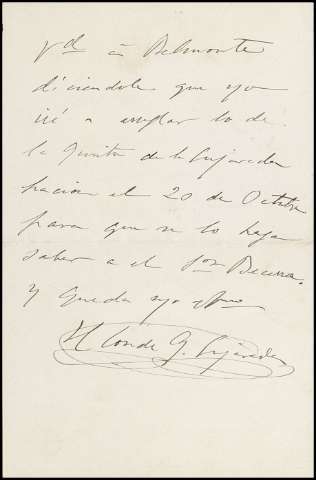 Vd. á Belmonte
diciendole que yo
iré a arreglar lo de
la Quinta de la Enjarada
hacia el 20 de Octubre
para que se lo haga
saber a el Sor. Becerra.
Y queda suyo affmo
El Conde de la Enjarada